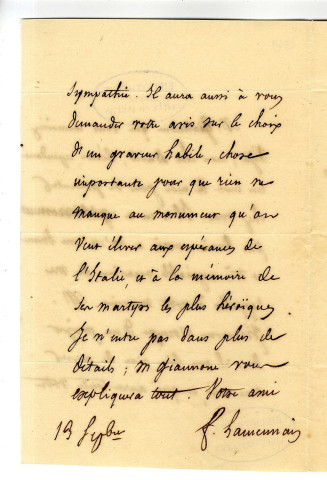 sympathie. Il aura aussi à vous
demander votre avis sur le choix
d'un graveur habile, chose
importante pour que rien ne
manque au monument qu'on
veut élever aux espérances de
l'Italie, et à la mémoire de
ses martyrs les plus héroïques.
Je n'entre pas dans plus de
détails; m giannone vous
expliquera tout. Votre ami
13 Sepbre F. Lamennais